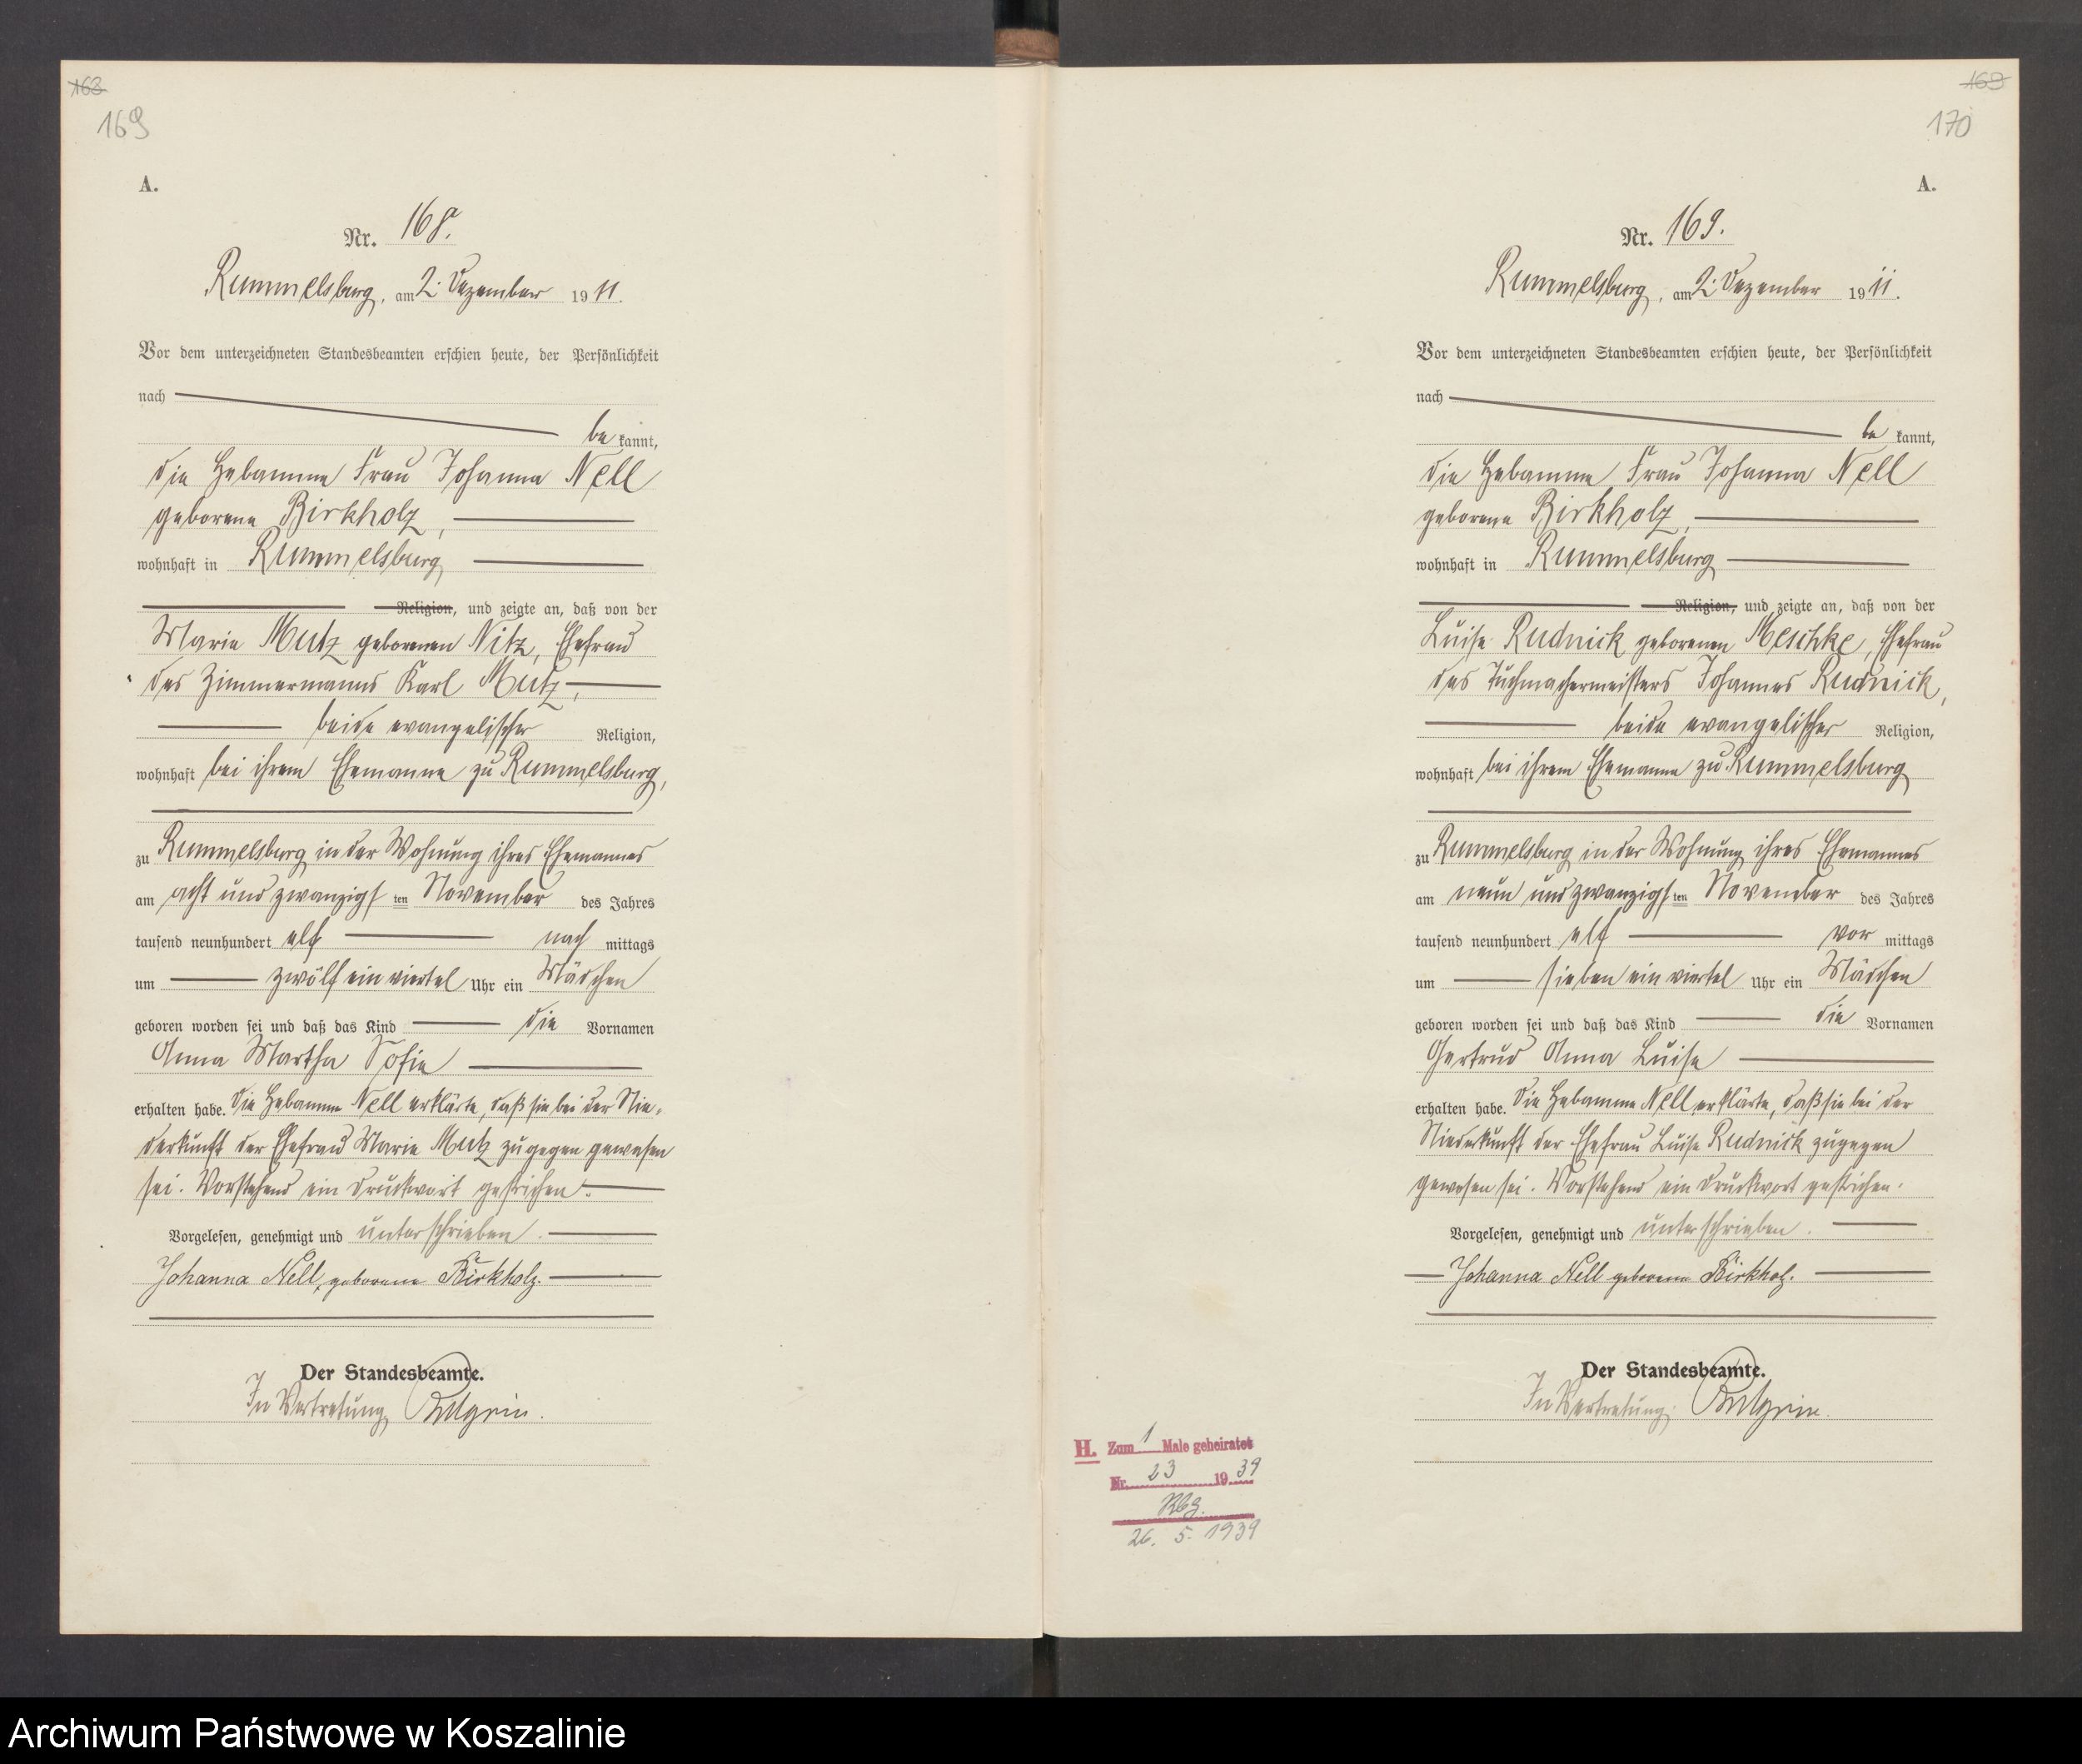 168
169
A.
Nr. 168.
Rummelsburg, am 2. Dezember 1911.
Vor dem unterzeichneten Standesbeamten erschien heute, der Persönlichkeit
nach
be kannt,
die Hebamme Frau Johanna Nell
geborene Birkholz,
wohnhaft in Rummelsburg
Religion, und zeigte an, daß von der
Marie Mutz geborenen Nitz, Ehefrau
des Zimmermanns Karl Mutz,
beide evangelischer Religion,
wohnhaft bei ihrem Ehemanne zu Rummelsburg,
zu Rummelsburg in der Wohnung ihres Ehemannes
am acht und zwanzigsten November des Jahres
tausend neunhundert elf nach mittags
um zwölf ein viertel Uhr ein Mädchen
geboren worden sei und daß das Kind die Vornamen
Anna Martha Sofie
erhalten habe. Die Hebamme Nell erklärte, daß sie bei der Nie-
derkunft der Ehefrau Marie Mutz zugegen gewesen
sei. Vorstehend ein Druckwort gestrichen.
Vorgelesen, genehmigt und unterschrieben.
Johanna Nell, geborene Birkholz.
Der Standesbeamte.
In Vertretung
169
170
A.
Nr. 169.
Rummelsburg, am 2. Dezember 1911.
Vor dem unterzeichneten Standesbeamten erschien heute, der Persönlichkeit
nach
be kannt,
die Hebamme Frau Johanna Nell
geborene Birkholz,
wohnhaft in Rummelsburg
Religion, und zeigte an, daß von der
Luise Rudnick geborenen Meschke, Ehefrau
des Tuchmachermeisters Johannes Rudnick,
beide evangelischer Religion,
wohnhaft bei ihrem Ehemanne zu Rummelsburg
zu Rummelsburg in der Wohnung ihres Ehemannes
am neun und zwanzigsten November des Jahres
tausend neunhundert elf vor mittags
um sieben ein viertel Uhr ein Mädchen
geboren worden sei und daß das Kind die Vornamen
Gertrud Anna Luise
erhalten habe. Die Hebamme Nell erklärte, daß sie bei der
Niederkunft der Ehefrau Luise Rudnick zugegen
gewesen sei. Vorstehend ein Druckwort gestrichen.
Vorgelesen, genehmigt und unterschrieben.
Johanna Nell geborene Birkholz.
Der Standesbeamte.
In Vertretung
H. Zum 1 Male geheiratet
Nr. 23 1939
Rbg.
26. 5. 1939
Archiwum Państwowe w Koszalinie